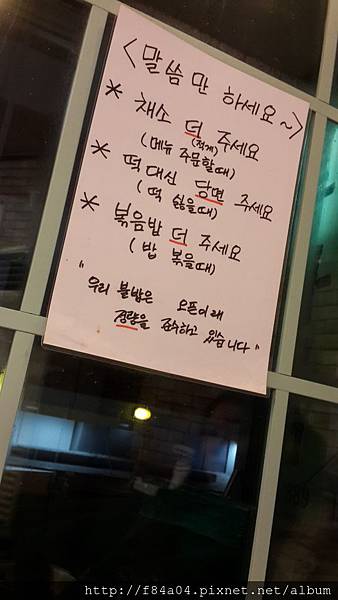 <말씀만 하세요~>
* 채소 더 주세요
(적게)
(메뉴 주문할때)
* 떡대신 당면 주세요
(떡 싫을때)
* 볶음밥 더 주세요
(밥 볶을때)
"우리 불밥은 오픈이래
정량을 준수하고 있습니다"
http://f84a04.pixnet.net/album